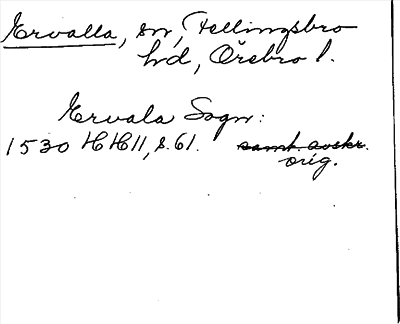 Ervalla, sn, Fellingsbro
hd, Örebro l.
Ervala Sogn:
1530 HH11, s. 61. samt. avskr.
orig.